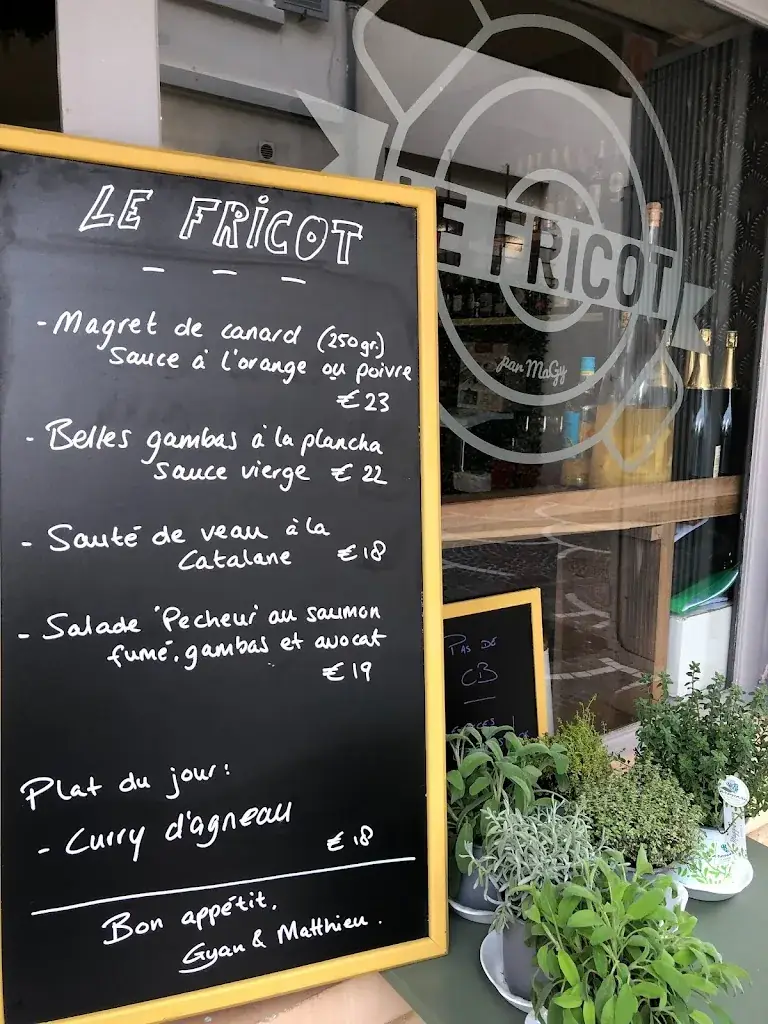 LE FRICOT
- Magret de canard (250gr.)
Sauce à l'orange ou poivre
€ 23
- Belles gambas à la plancha
Sauce vierge € 22
- Sauté de veau à la
Catalane € 18
- Salade 'Pecheur' au saumon
fumé, gambas et avocat
€ 19
Plat du jour:
- Curry d'agneau
€ 18
Bon appétit.
Gyan & Matthieu.
LE FRICOT
par MaGy
PAS DE
CB